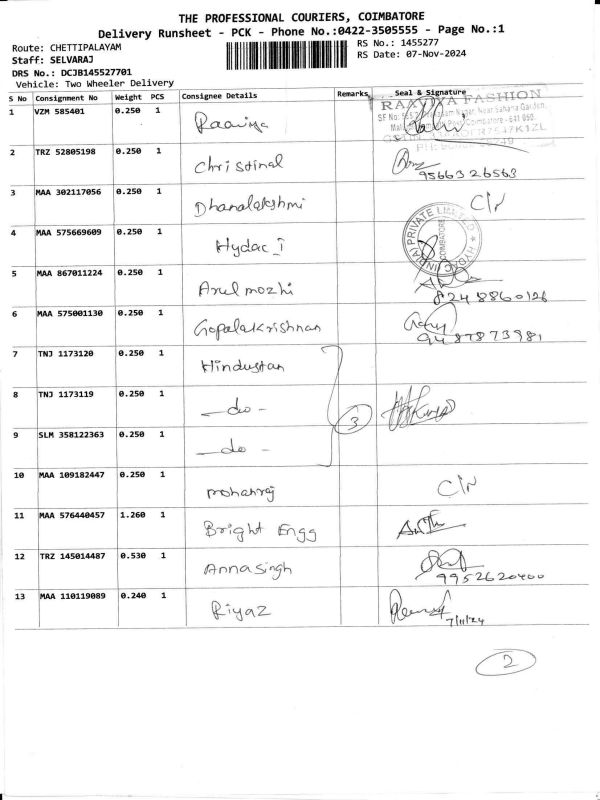 THE PROFESSIONAL COURIERS, COIMBATORE
Delivery Runsheet - PCK - Phone No.:0422-3505555 - Page No.:1
Route: CHETTIPALAYAM
RS No.: 1455277
Staff: SELVARAJ
RS Date: 07-Nov-2024
DRS No.: DCJB145527701
Vehicle: Two Wheeler Delivery
S No Consignment No Weight PCS Consignee Details Remarks Seal & Signature
1 VZM 585401 0.250 1 Raaniya
RAANIYA FASHION
2 TRZ 52805198 0.250 1 Christinal
9566326563
3 MAA 302117056 0.250 1 Dhanalakshmi C/N
4 MAA 575669609 0.250 1 Hydac_I
HYDAC (INDIA) PRIVATE LIMITED
COIMBATORE
5 MAA 867011224 0.250 1 Arulmozhi
8248860126
6 MAA 575001130 0.250 1 Gopalakrishnan
9487873981
7 TNJ 1173120 0.250 1 Hindustan
8 TNJ 1173119 0.250 1 -do-
3
9 SLM 358122363 0.250 1 -do-
10 MAA 109182447 0.250 1 mohanraj C/N
11 MAA 576440457 1.260 1 Bright Engg
12 TRZ 145014487 0.530 1 Annasingh
9952620400
13 MAA 110119089 0.240 1 Riyaz
7/11/24
2